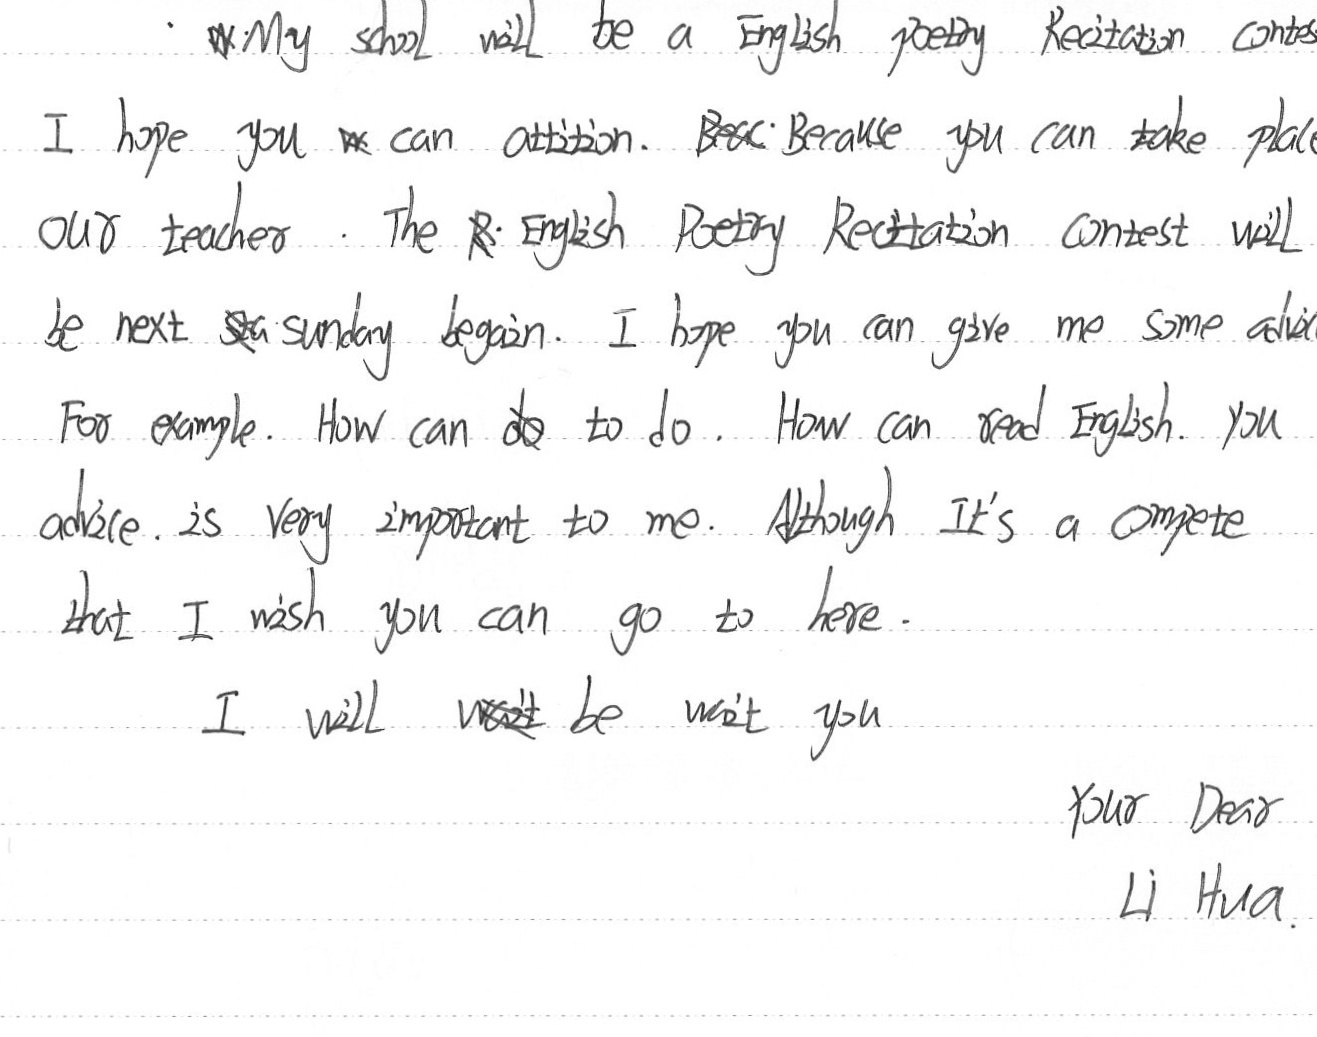 My school will be a English poetry Recitation contes
I hope you can attition. Because you can take plac
our teacher. The English Poetry Recitation contest will
be next sunday begain. I hope you can give me some advic
For example. How can to do. How can read English. You
advice. is very important to me. Although It's a ompete
that I wish you can go to here.
I will be wait you
Your Dear
Li Hua.